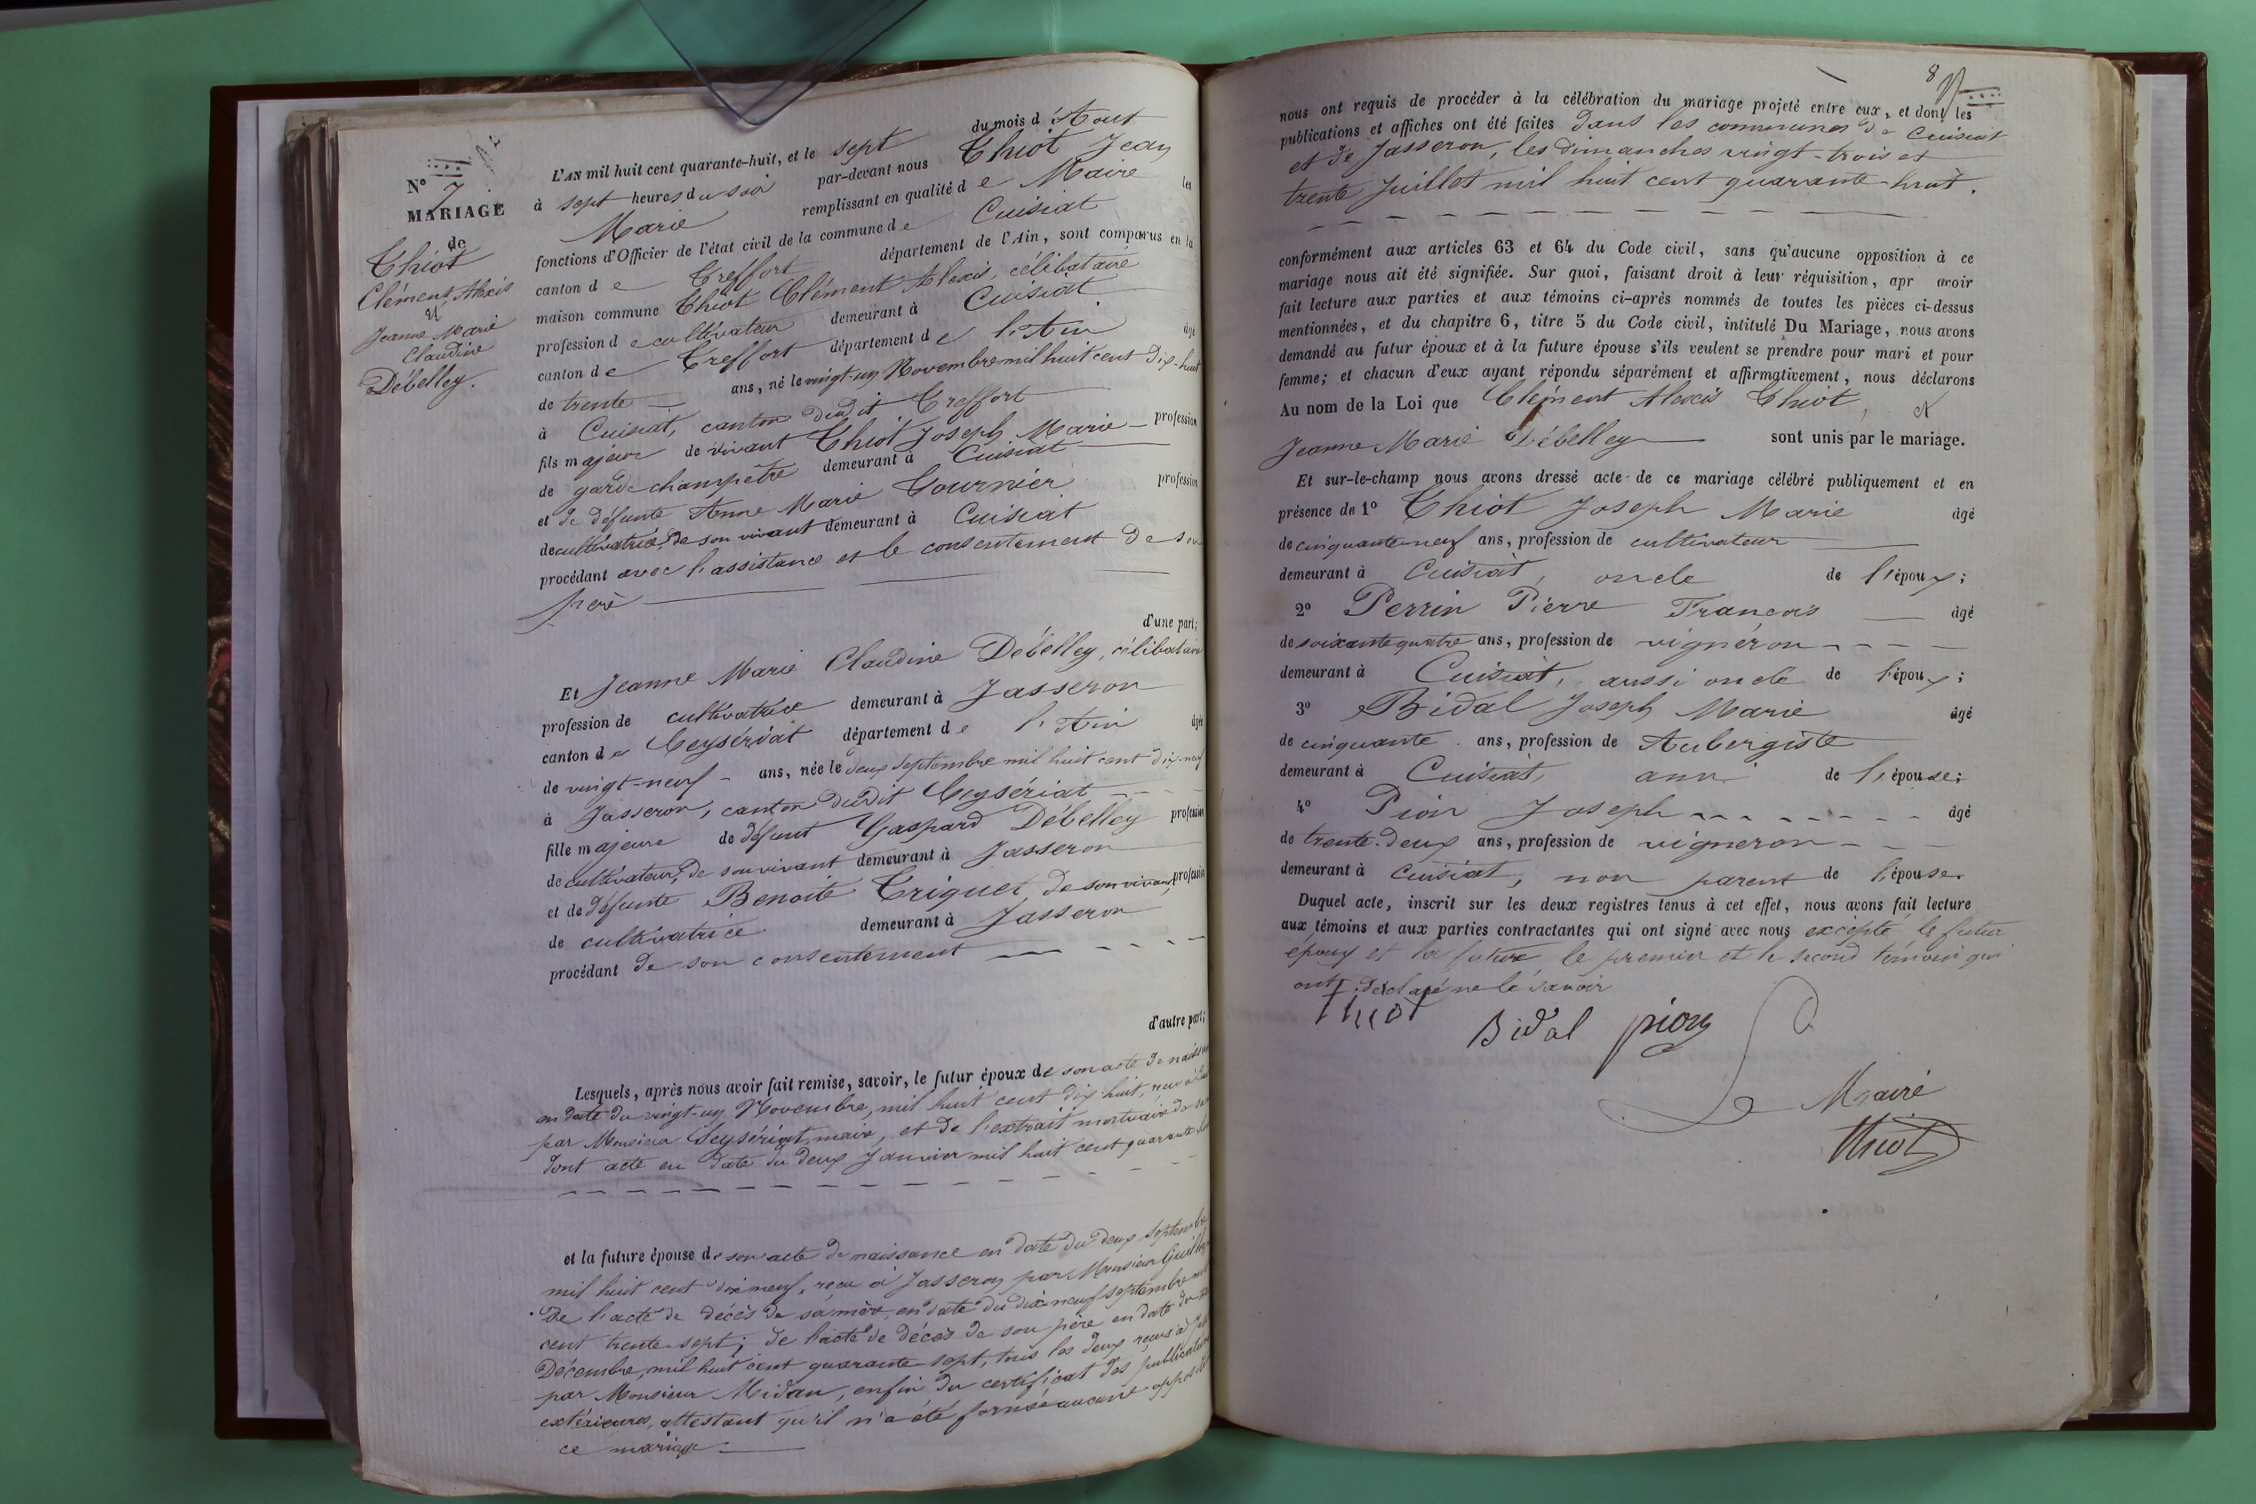 N° 7
MARIAGE
de
Thiot
Clément Alexis
et
Jeanne Marie
Claudine
Débelley.
L'AN mil huit cent quarante-huit, et le sept du mois d'Aout
à sept heures du soir par-devant nous Thiot Jean
Marie remplissant en qualité de Maire les
fonctions d'Officier de l'état civil de la commune de Cuisiat
canton de Treffort département de l'Ain, sont comparus en la
maison commune Thiot Clément Alexis, célibataire
profession de cultivateur demeurant à Cuisiat.
canton de Treffort département de l'Ain âgé
de trente ans, né le vingt-un Novembre mil huit cent dix-huit
à Cuisiat, canton dudit Treffort
fils majeur de vivant Thiot Joseph Marie profession
de garde champêtre demeurant à Cuisiat
et de défunte Anne Marie Tournier profession
de cultivatrice, de son vivant demeurant à Cuisiat
procédant avec l'assistance et le consentement de son
père
d'une part;
Et Jeanne Marie Claudine Débelley, célibataire
profession de cultivatrice demeurant à Jasseron
canton de Ceysériat département de l'Ain âgée
de vingt-neuf ans, née le deux septembre mil huit cent dix-neuf
à Jasseron, canton dudit Ceysériat
fille majeure de défunt Gaspard Débelley profession
de cultivateur, de son vivant demeurant à Jasseron
et de défunte Benoite Triquet, de son vivant, profession
de cultivatrice demeurant à Jasseron
procédant de son consentement
d'autre part;
Lesquels, après nous avoir fait remise, savoir, le futur époux de son acte de
en date du vingt-un Novembre, mil huit cent dix huit, reçu à
par Monsieur Ceysériat, maire, et de l'extrait mortuaire de sa
dont acte en date du deux Janvier mil huit cent quarante
et la future épouse de son acte de naissance en date du deux septembre
mil huit cent dix neuf, reçu à Jasseron par Monsieur
De l'acte de décès de sa mère, en date du dix-neuf septembre mil
cent trente sept; de l'acte de décès de son père en date du
Décembre, mil huit cent quarante sept, tous les deux reçus à
par Monsieur Midan, enfin du certificat des publications
extérieures, attestant qu'il n'a été formé aucune
ce mariage.
8
nous ont requis de procéder à la célébration du mariage projeté entre eux, et dont les
publications et affiches ont été faites dans les communes de Cuisiat
et de Jasseron, les dimanches vingt-trois et
trente Juillet mil huit cent quarante-huit.
conformément aux articles 63 et 64 du Code civil, sans qu'aucune opposition à ce
mariage nous ait été signifiée. Sur quoi, faisant droit à leur réquisition, apr avoir
fait lecture aux parties et aux témoins ci-après nommés de toutes les pièces ci-dessus
mentionnées, et du chapitre 6, titre 5 du Code civil, intitulé Du Mariage, nous avons
demandé au futur époux et à la future épouse s'ils veulent se prendre pour mari et pour
femme; et chacun d'eux ayant répondu séparément et affirmativement, nous déclarons
Au nom de la Loi que Clément Alexis Thiot, et
Jeanne Marie Débelley sont unis par le mariage.
Et sur-le-champ nous avons dressé acte de ce mariage célébré publiquement et en
présence de 1° Thiot Joseph Marie âgé
de cinquante neuf ans, profession de cultivateur
demeurant à Cuisiat, oncle de l'époux;
2° Perrin Pierre François âgé
de soixante quatre ans, profession de vignéron
demeurant à Cuisiat, aussi oncle de l'époux;
3° Bidal Joseph Marie âgé
de cinquante ans, profession de Aubergiste
demeurant à Cuisiat, ami de l'épouse;
4° Pion Joseph âgé
de trente-deux ans, profession de vigneron
demeurant à Cuisiat, non parent de l'épouse.
Duquel acte, inscrit sur les deux registres tenus à cet effet, nous avons fait lecture
aux témoins et aux parties contractantes qui ont signé avec nous excépté le futur
époux et la future le premier et le second témoin qui
ont déclaré ne le savoir
Thiot
Bidal pion
Le Maire
Thiot